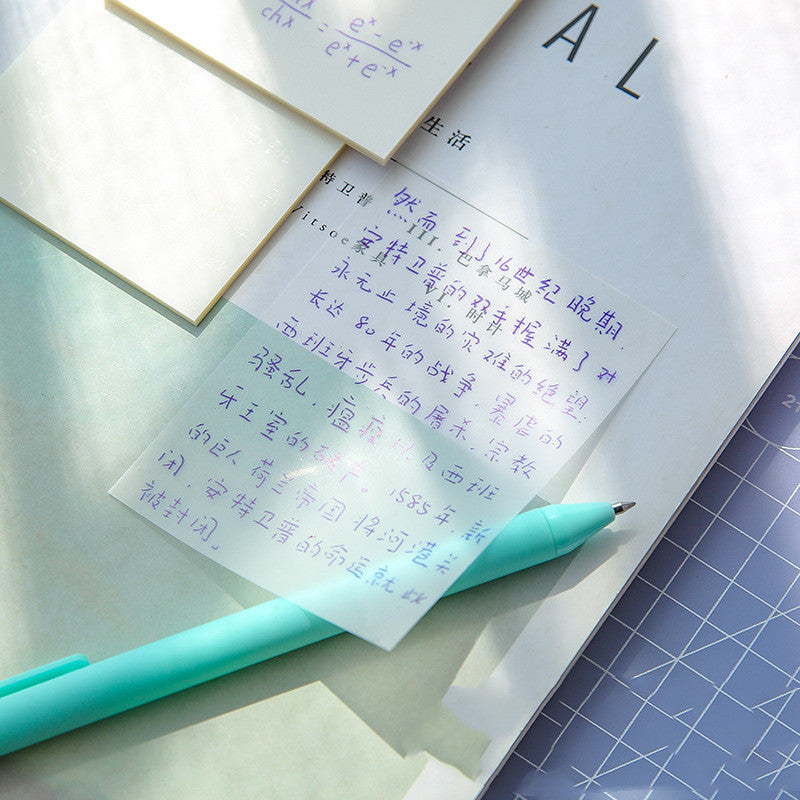 chx
= e^x - e^-x
e^x + e^-x
A L
生活
特卫普
Vitsoe家具
III. 巴拿马城
VI. 时计
然而到了16世纪晚期.
安特卫普的双手握满了对
永无止境的灾难的绝望:
长达80年的战争,暴虐的
西班牙步兵的屠杀,宗教
骚乱,瘟疫以及西班
牙王室的破产。1585年,新
的巨人荷兰帝国将河港关
闭,安特卫普的命运就此
被封闭。